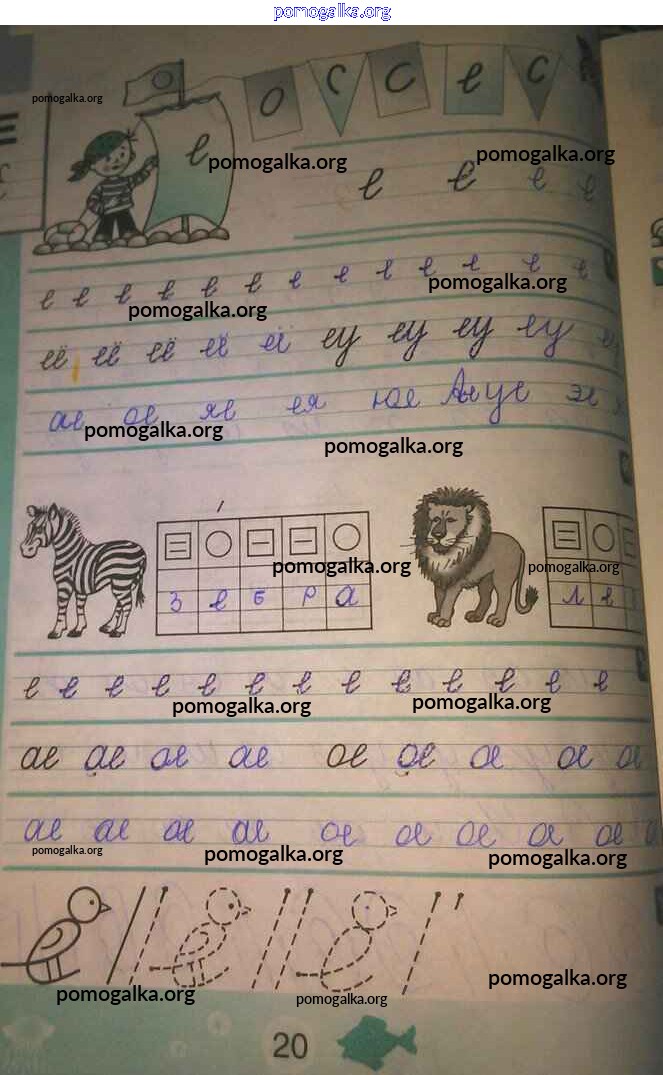 pomogalka.org
о с с е с
pomogalka.org
е pomogalka.org pomogalka.org
е е е е
е е е е е е е е е е е е е
pomogalka.org pomogalka.org
её её её её её еу еу еу еу
ае ое яе ея юе эе
pomogalka.org pomogalka.org
pomogalka.org pomogalka.org
з е б р а л е
е е е е е е е е е е е е е
pomogalka.org pomogalka.org
ае ае ае ае ое ое ое ое ое
ае ае ае ае ое ое ое ое ое
pomogalka.org pomogalka.org pomogalka.org
pomogalka.org
pomogalka.org pomogalka.org
20